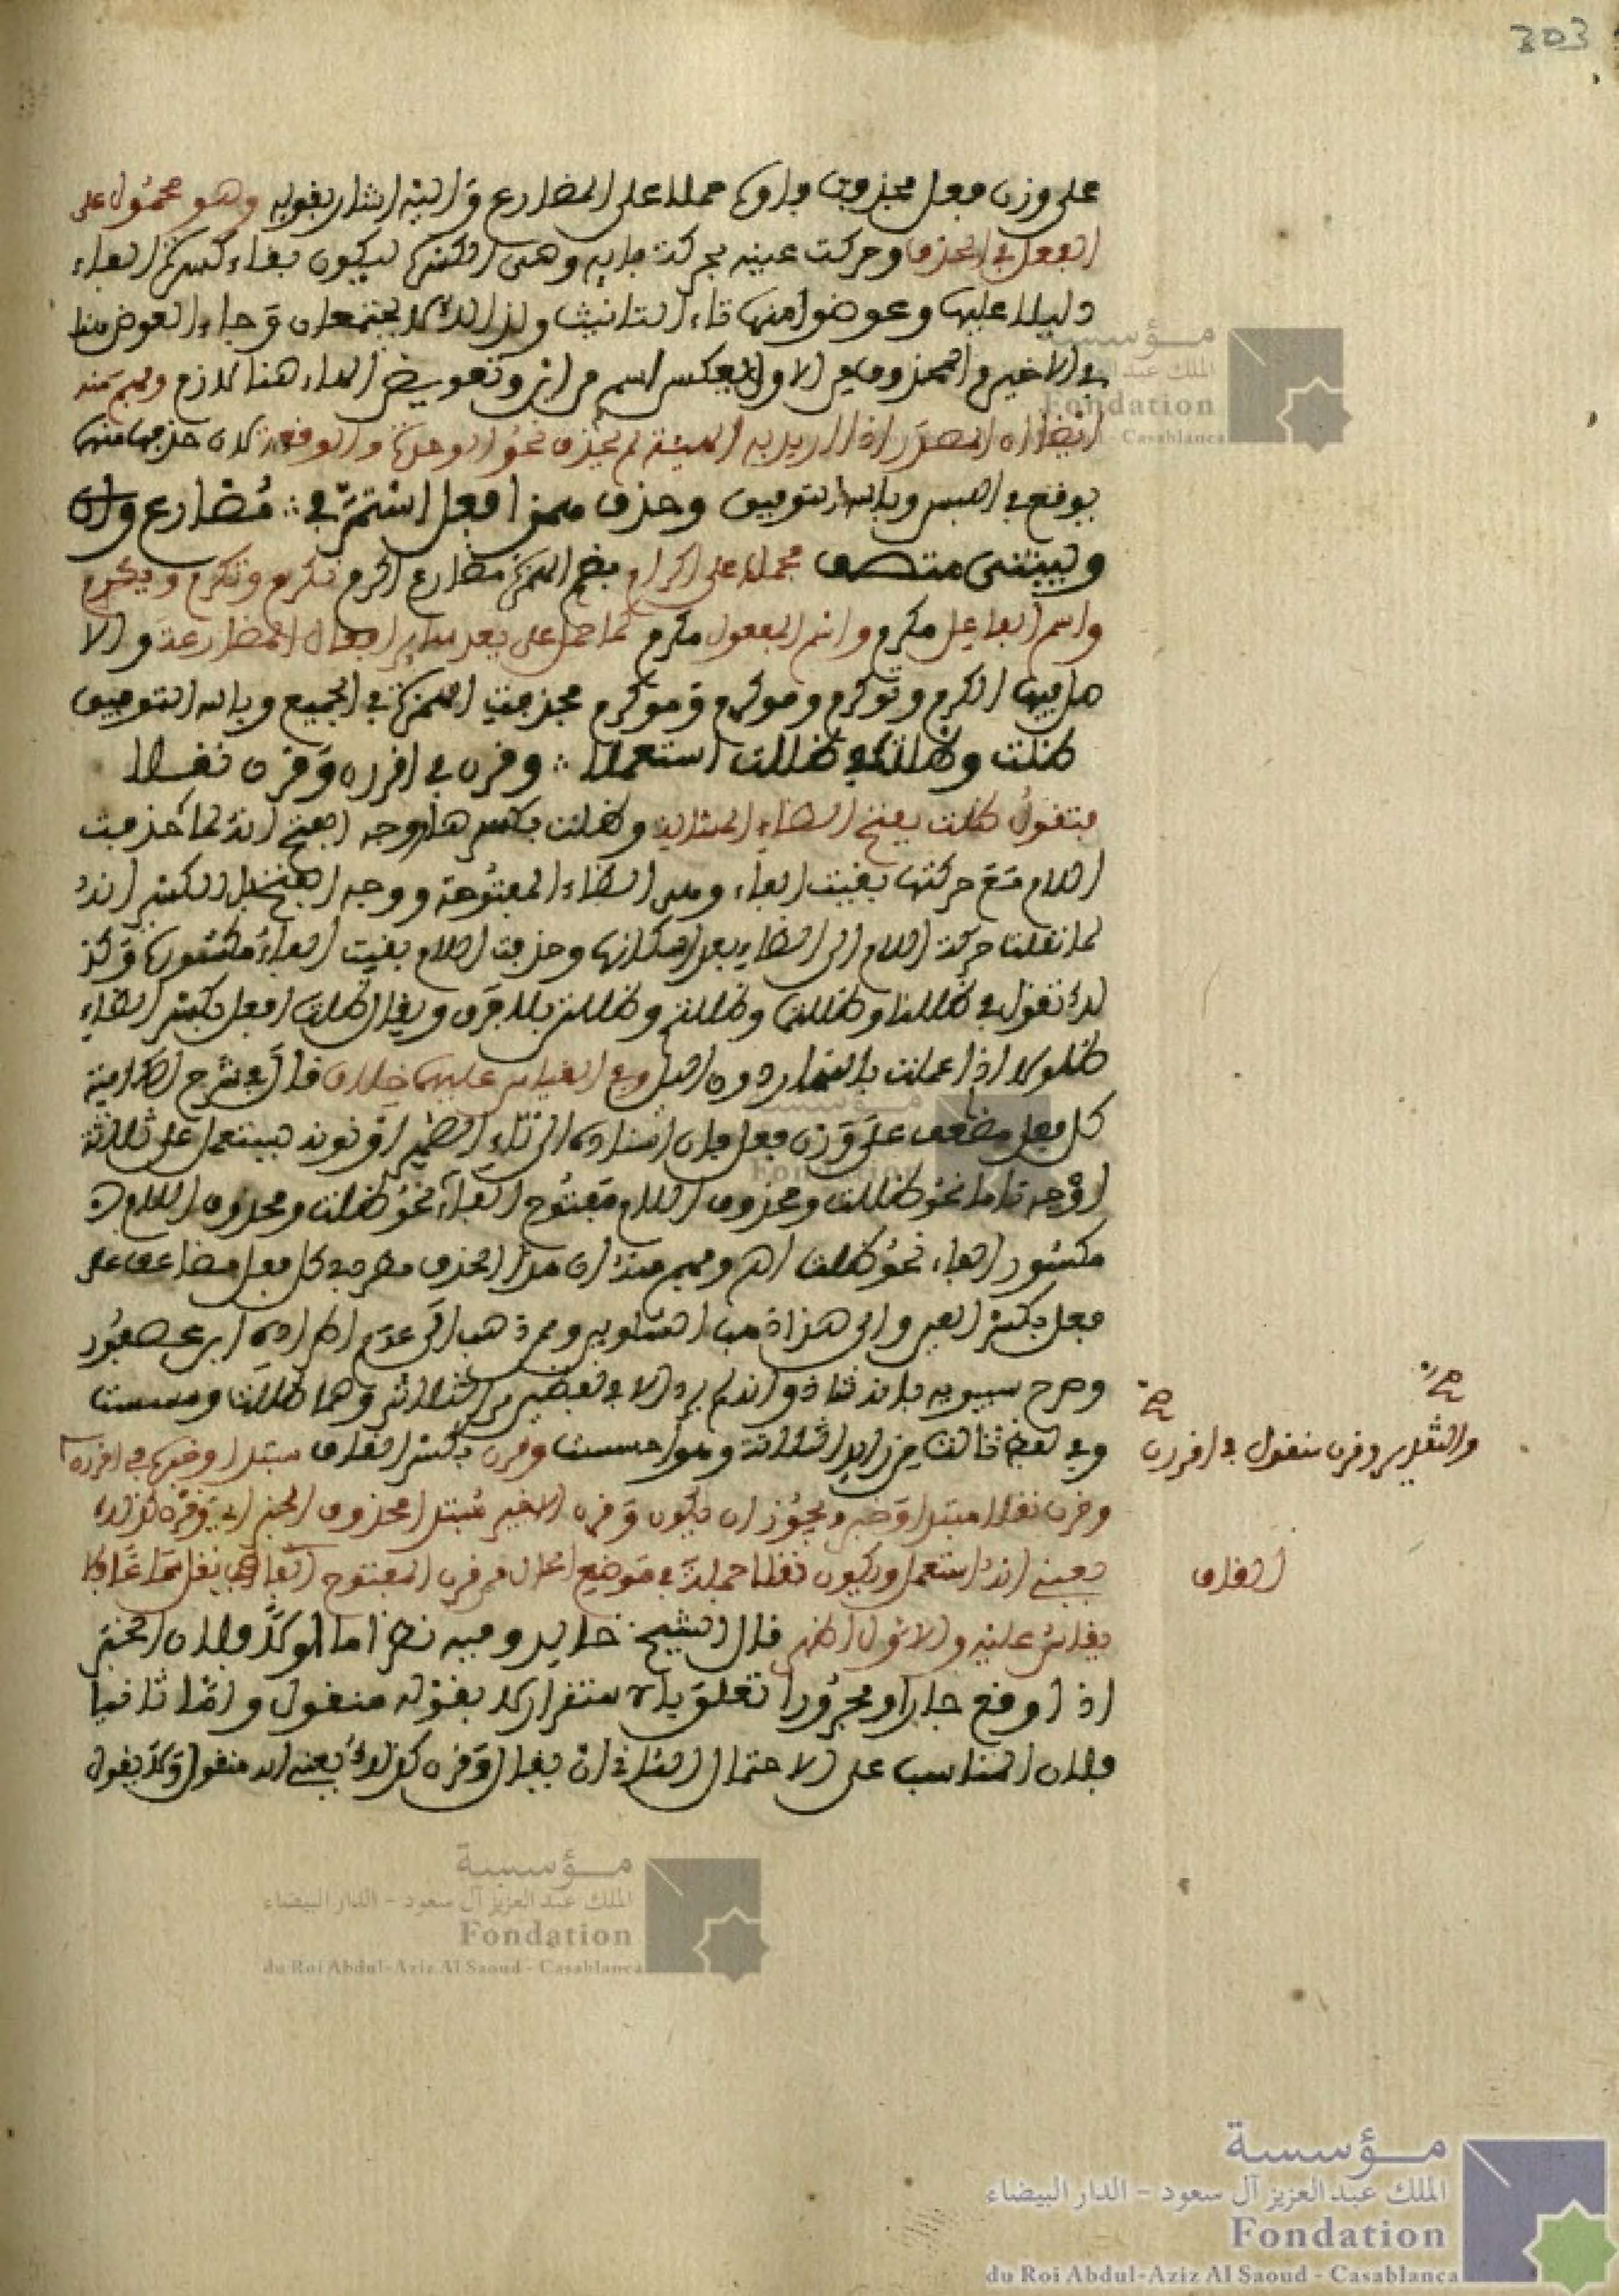 303
على وزن فعل فحذفت فاوها حملا على المضارع واليه اشار بقوله وهو محمول على
الفعل في الحذف وحركت عينه بحركة فايه وهي الكسرة ليكون بقاء كسرة الفاء
دليلا عليها وعوضوا منها تاء التانيث ولذالك لا يجتمعان وجاء العوض هنا
في الاخير والمحذوف في الاول بعكس اسم وابن وتعويض الهاء هنا لازم وفهم منه
ايضا ان المصدر اذا اريد به الهيئة لم يحذف نحو الوعدة والوقعة لان حذفها منها
يوقع في اللبس وبالله التوفيق وحذف همز افعل استمر في ∴ مضارع و
وبنيتي متصف محملا على اكرم بضم الهمزة مضارع اكرم نكرم وتكرم ويكرم
واسم الفاعل مكرم واسم المفعول مكرم كما حمل على يعد ساير افعال المضارعة والا
صل فيها ااكرم ونوكرم وموكرم وموكرم فحذفت الهمزة في الجميع وبالله التوفيق
ظلت وظلت في ظللت استعملا ∴ وقرن في اقررن وقرن نقلا
فتقول ظلت بفتح الظاء المشالة وظلت بكسرها ووجه الفتح انه لما حذفت
اللام مع حركتها بقيت الفاء وهي الظاء المفتوحة ووجه الكسر انه
لما نقلنا حركة اللام الى الظاء بعد اسكانها وحذفت اللام بقيت الفاء مكسورة وكذ
لك تقول في ظللنا وظللتما وظللتم وظللتن بلا فرق ويقال ظللت افعل بكسر الظاء
ظلولا اذا عملت بالنهار دون اليل وفي القياس عليهما خلاف قال في شرح الكافية
كل فعل مضعف على وزن فعل فان اسناده الى تاء الضمير او نونه يستعمل على ثلاثة
اوجه تاما نحو ظللت ومحذوف اللام مفتوح الفاء نحو ظلت ومحذوف اللام
مكسور الفاء نحو ظلت اه وفهم منه ان هذا الحذف مطرد في كل فعل مضاعف على
فعل بكسر العين والى هذا ذهب الشلوبين وممن ذهب الى عدم اطراده ابن عصفور
وصرح سيبويه بانه شاذ وانه لم يرد الا في لفظين من الثلاثي وهما ظللت ومسست
وفي لفظ ثالث من زايد الثلاثة وهو احسست وقرن بكسر القاف مبتدا وخبره في اقررن
وقرن نقلا مبتدا وخبر ويجوز ان يكون وقرن الاخير مبتدا محذوف الخبر اي وقرن كذلك
يعني انه استعمل ويكون نقلا جملة في موضع الحال من قرن المفتوح القاف اي نقل سماعا ولا
يقاس عليه والاول اظهر قال الشيخ خالد وفيه نظر اما اولا فلان الخبر
اذا وقع جارا ومجرورا تعلق بالاستقرار لا بقوله منقول واما ثانيا
فلان المناسب على الاحتمال الثاني ان يقال وقرن كذلك يعني انه منقول ولا يقول
والتقدير وقرن منقول في اقررن
القاف
مؤسسة
الملك عبد العزيز آل سعود - الدار البيضاء
Fondation
du Roi Abdul-Aziz Al Saoud - Casablanca